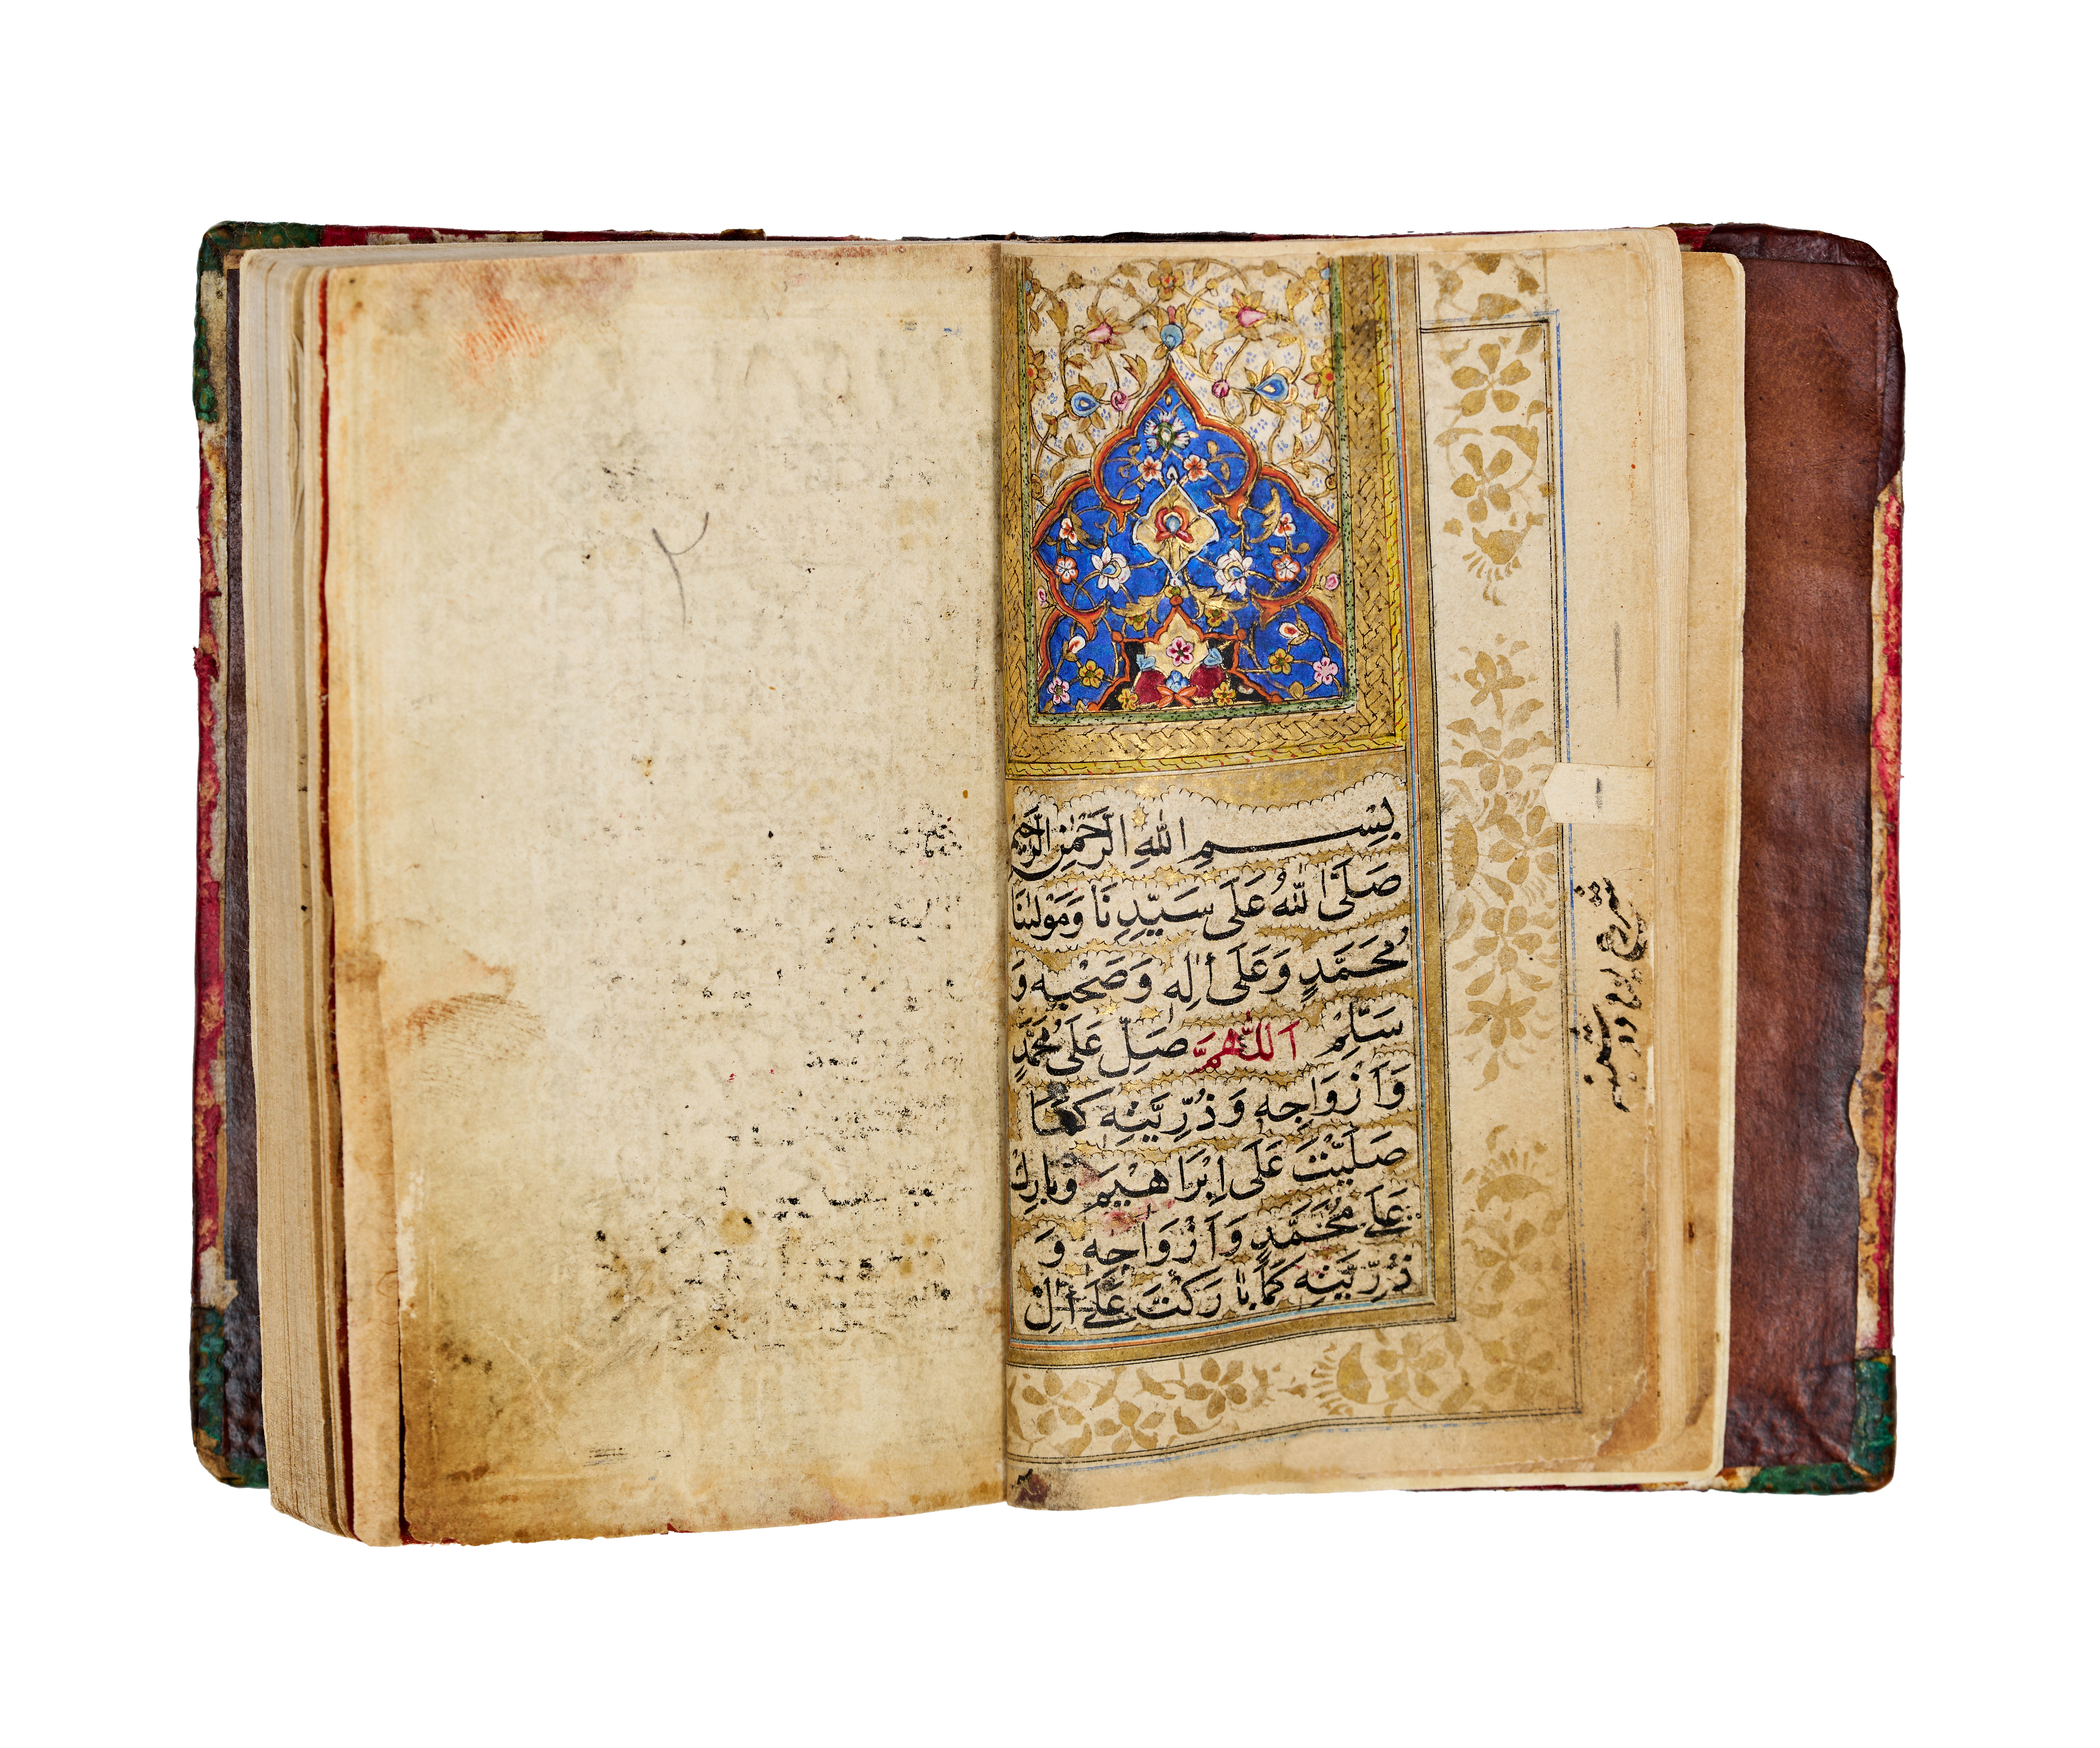 بِسْمِ اللهِ الرَّحْمٰنِ الرَّحِيمِ
صَلَّى اللهُ عَلَى سَيِّدِنَا وَمَوْلٰنَا
مُحَمَّدٍ وَعَلَى اٰلِهٖ وَصَحْبِهٖ وَ
سَلِّمْ اَللّٰهُمَّ صَلِّ عَلَى مُحَمَّدٍ
وَاَزْوَاجِهٖ وَذُرِّيَّتِهٖ كَمَا
صَلَّيْتَ عَلَى اِبْرَاهِيْمَ وَبَارِكْ
عَلَى مُحَمَّدٍ وَاَزْوَاجِهٖ وَ
ذُرِّيَّتِهٖ كَمَا بَارَكْتَ عَلَى اٰلِ
٢